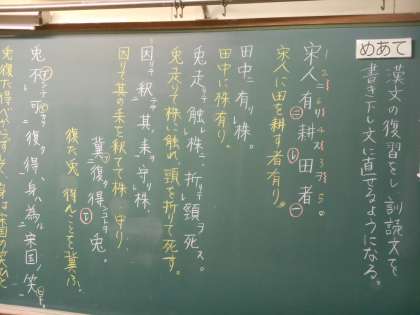 めあて
漢文の復習をし、訓読文を
書き下し文に直せるようになる。
宋人有耕田者。
宋人に田を耕す者有り。
田中ニ有リ株。
田中に株有り。
兎走リテ触レ株ニ、折リテ頸ヲ死ス。
兎走りて株に触れ、頸を折りて死す。
因リテ釈テテ其ノ耒ヲ守リ株、
因りて其の耒を釈てて株を守り
冀フ復タ得ンコトヲ兎。
復た兎を得んことを冀ふ。
兎不可カラ復タ得、身ハ為ル宋国ノ笑ヒト。
兎復た得べからずして、身は宋国の笑ひと